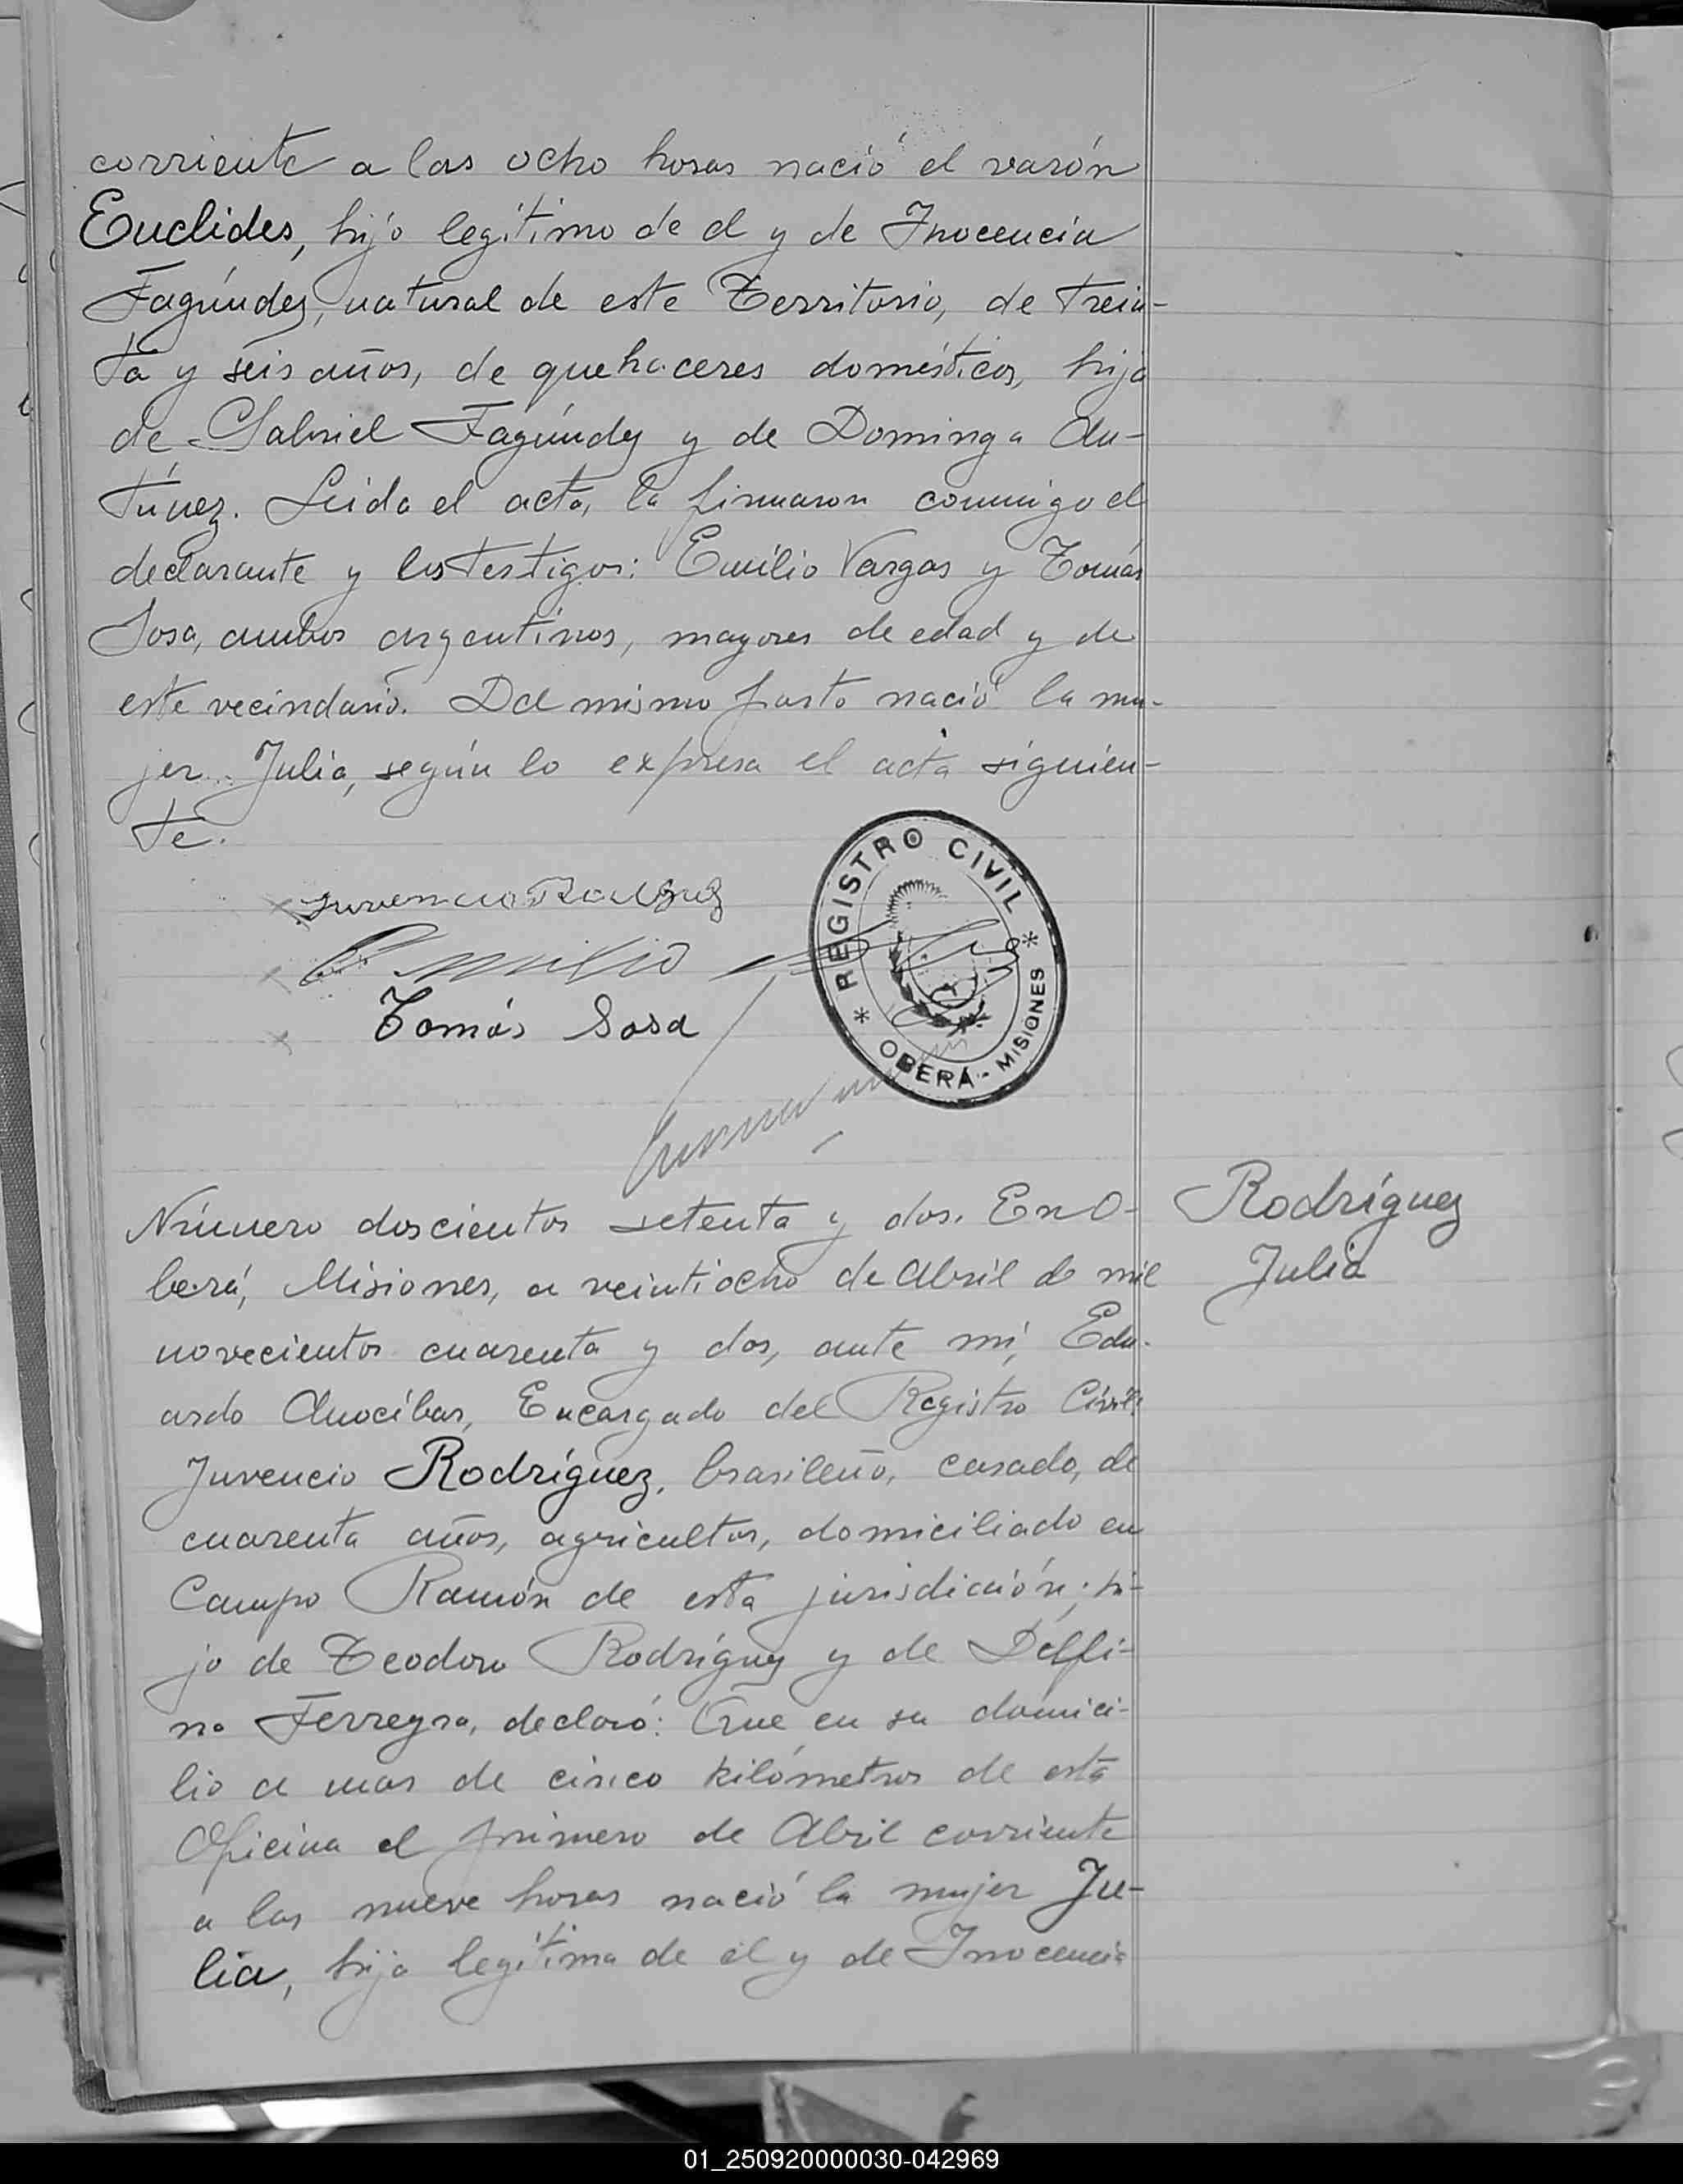 corriente a las ocho horas nació el varón
Euclides, hijo legítimo de el y de Inocencia
Fagúndez, natural de este Territorio, de trein-
ta y seis años, de quehaceres domésticos, hija
de Gabriel Fagúndez y de Dominga An-
túnez. Leida el acta, la firmaron conmigo el
declarante y los testigos: Emilio Vargas y Tomás
Sosa, ambos argentinos, mayores de edad y de
este vecindario. Del mismo parto nació la mu-
jer Julia, según lo expresa el acta siguien-
te.
Juvencio Rodriguez
Emilio
Tomás Sosa
* REGISTRO CIVIL *
OBERÁ - MISIONES
Número doscientos setenta y dos. En O-
berá, Misiones, a veintiocho de Abril de mil
novecientos cuarenta y dos, ante mí, Edu-
ardo Anocíbar, Encargado del Registro Civil:
Juvencio Rodríguez, brasileño, casado, de
cuarenta años, agricultor, domiciliado en
Campo Ramón de esta jurisdicción, hi-
jo de Teodoro Rodríguez y de Delfi-
na Ferreyra, declaró: Que en su domici-
lio a mas de cinco kilómetros de esta
Oficina el primero de Abril corriente
a las nueve horas nació la mujer Ju-
lia, hija legítima de él y de Inocencia
Rodríguez
Julia
01_250920000030-042969